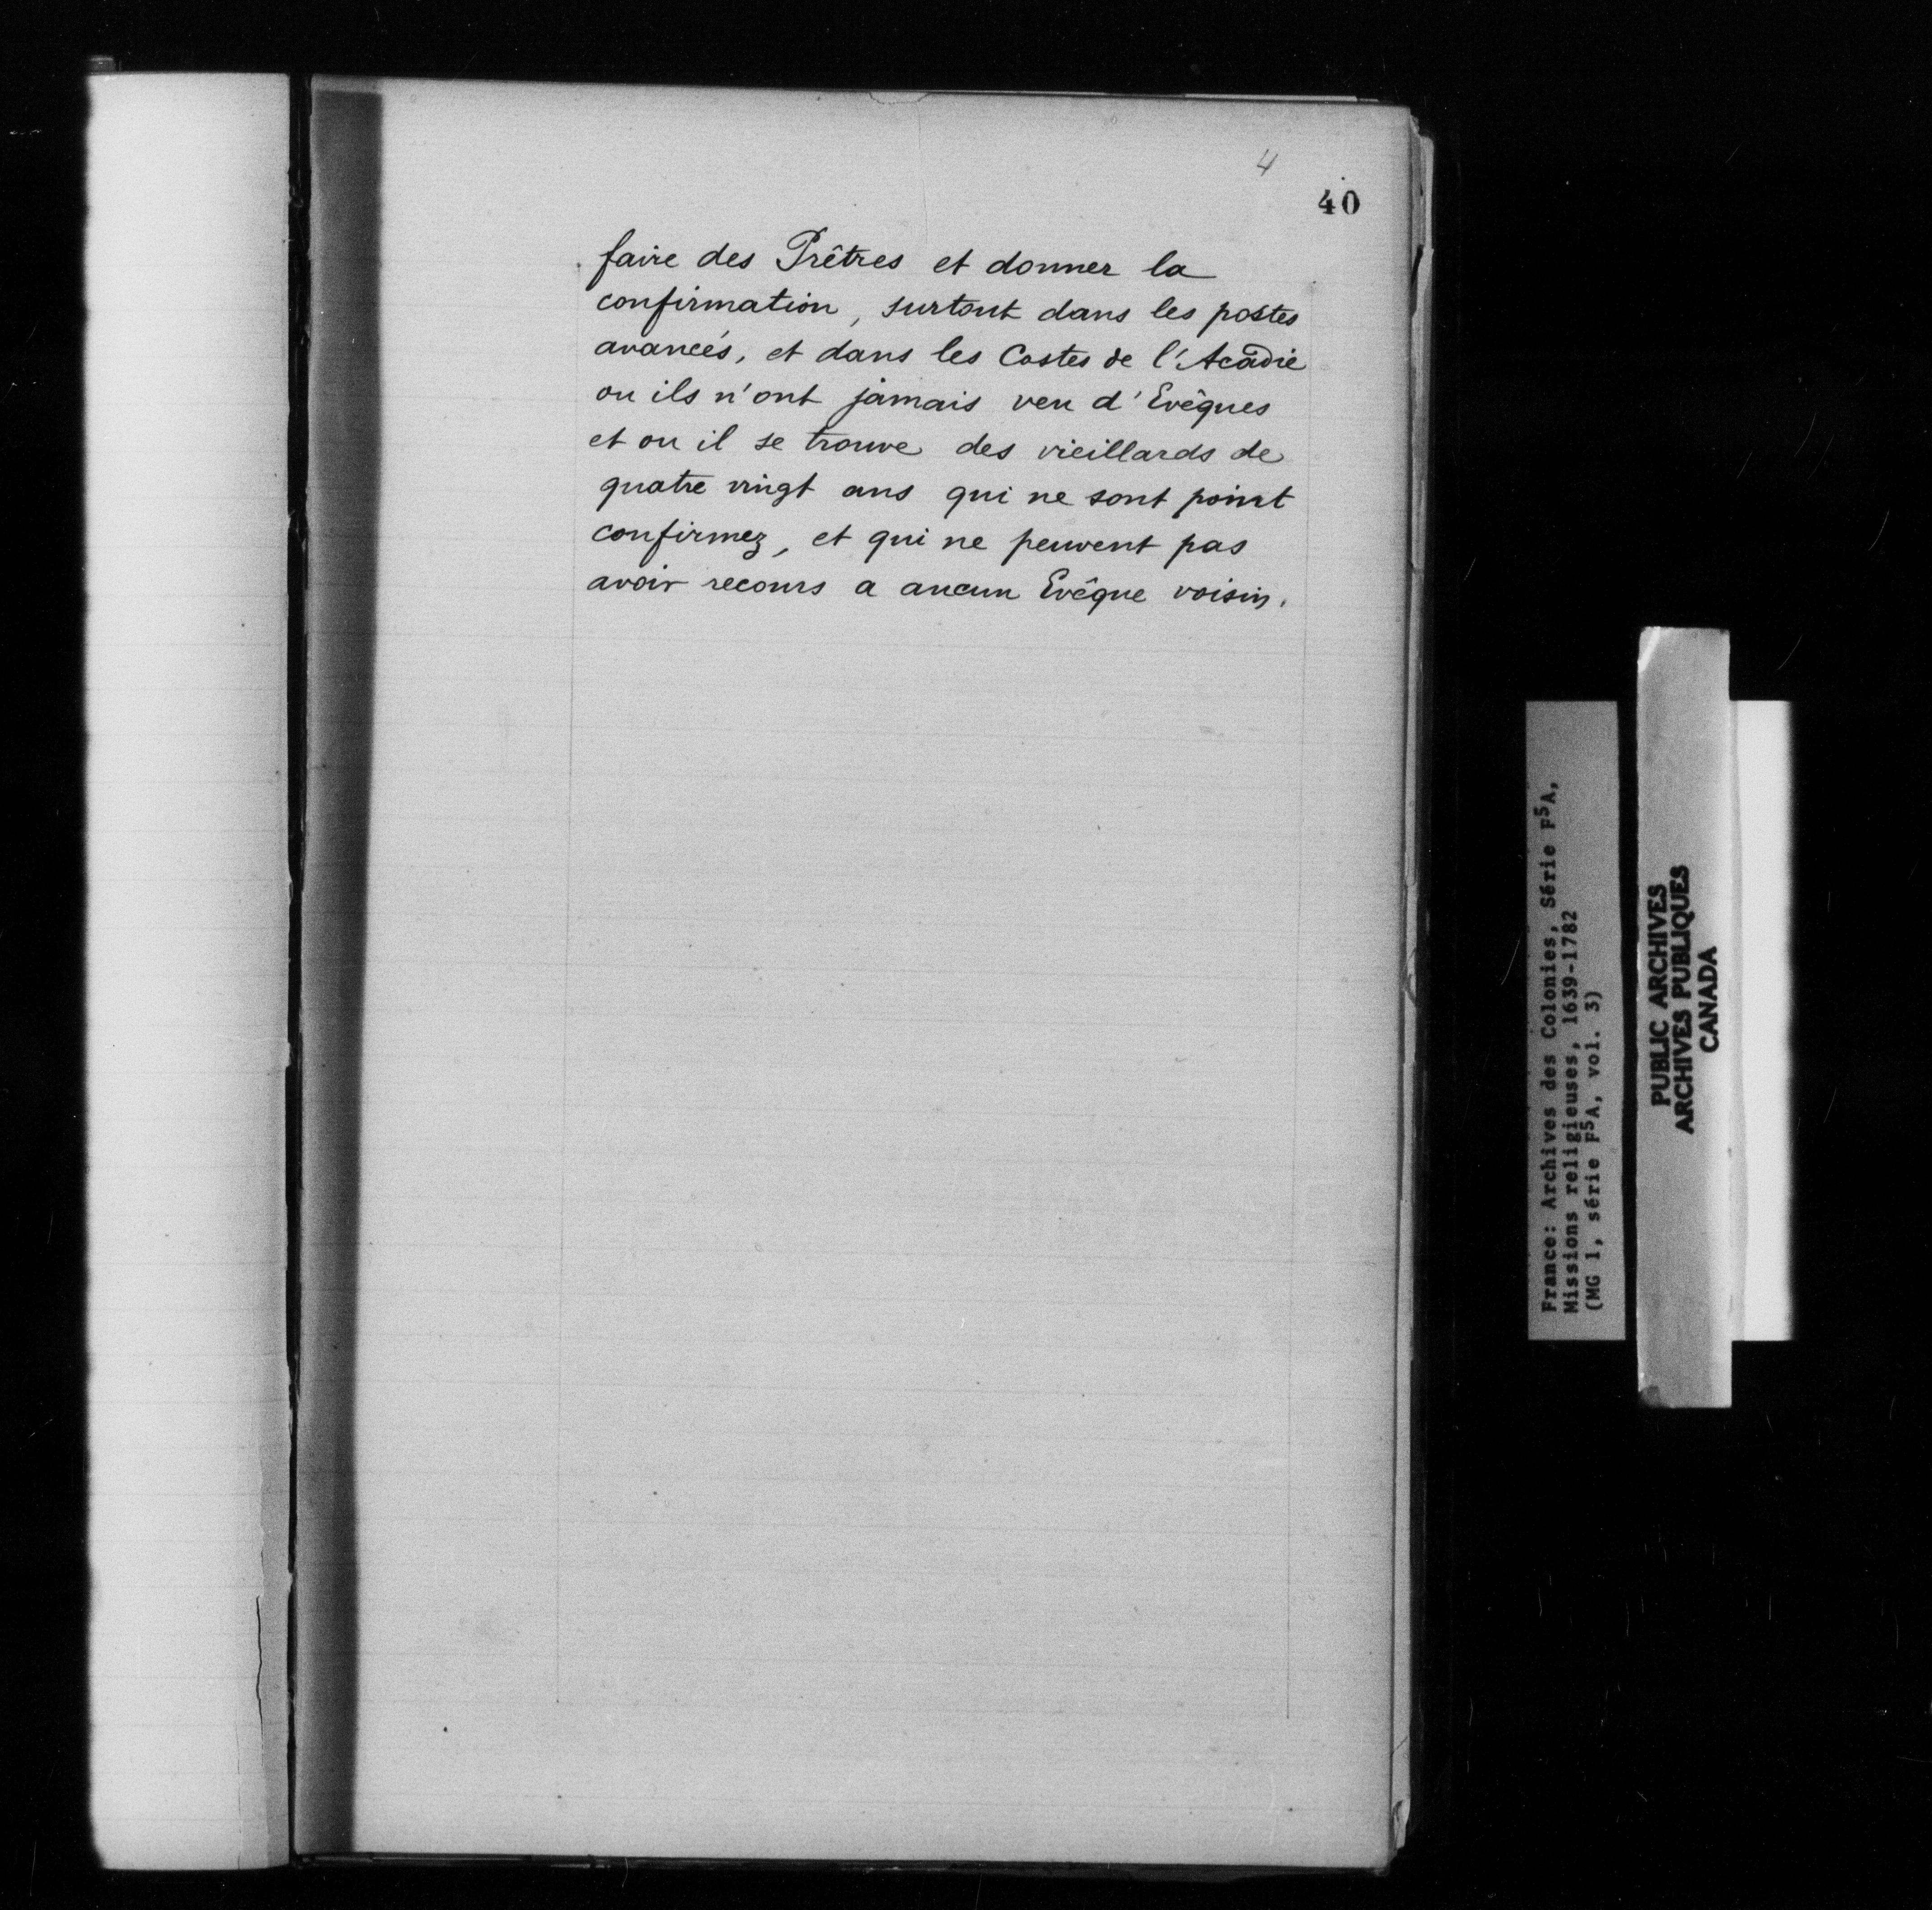 4
40
faire des Prêtres et donner la
confirmation, surtout dans les postes
avancés, et dans les Costes de l'Acadie
ou ils n'ont jamais veu d'Evêques
et ou il se trouve des vieillards de
quatre vingt ans qui ne sont point
confirmez, et qui ne peuvent pas
avoir recours a aucun Evêque voisin.
France: Archives des Colonies, Série F5A,
Missions religieuses, 1639-1782
(MG 1, série F5A, vol. 3)
PUBLIC ARCHIVES
ARCHIVES PUBLIQUES
CANADA